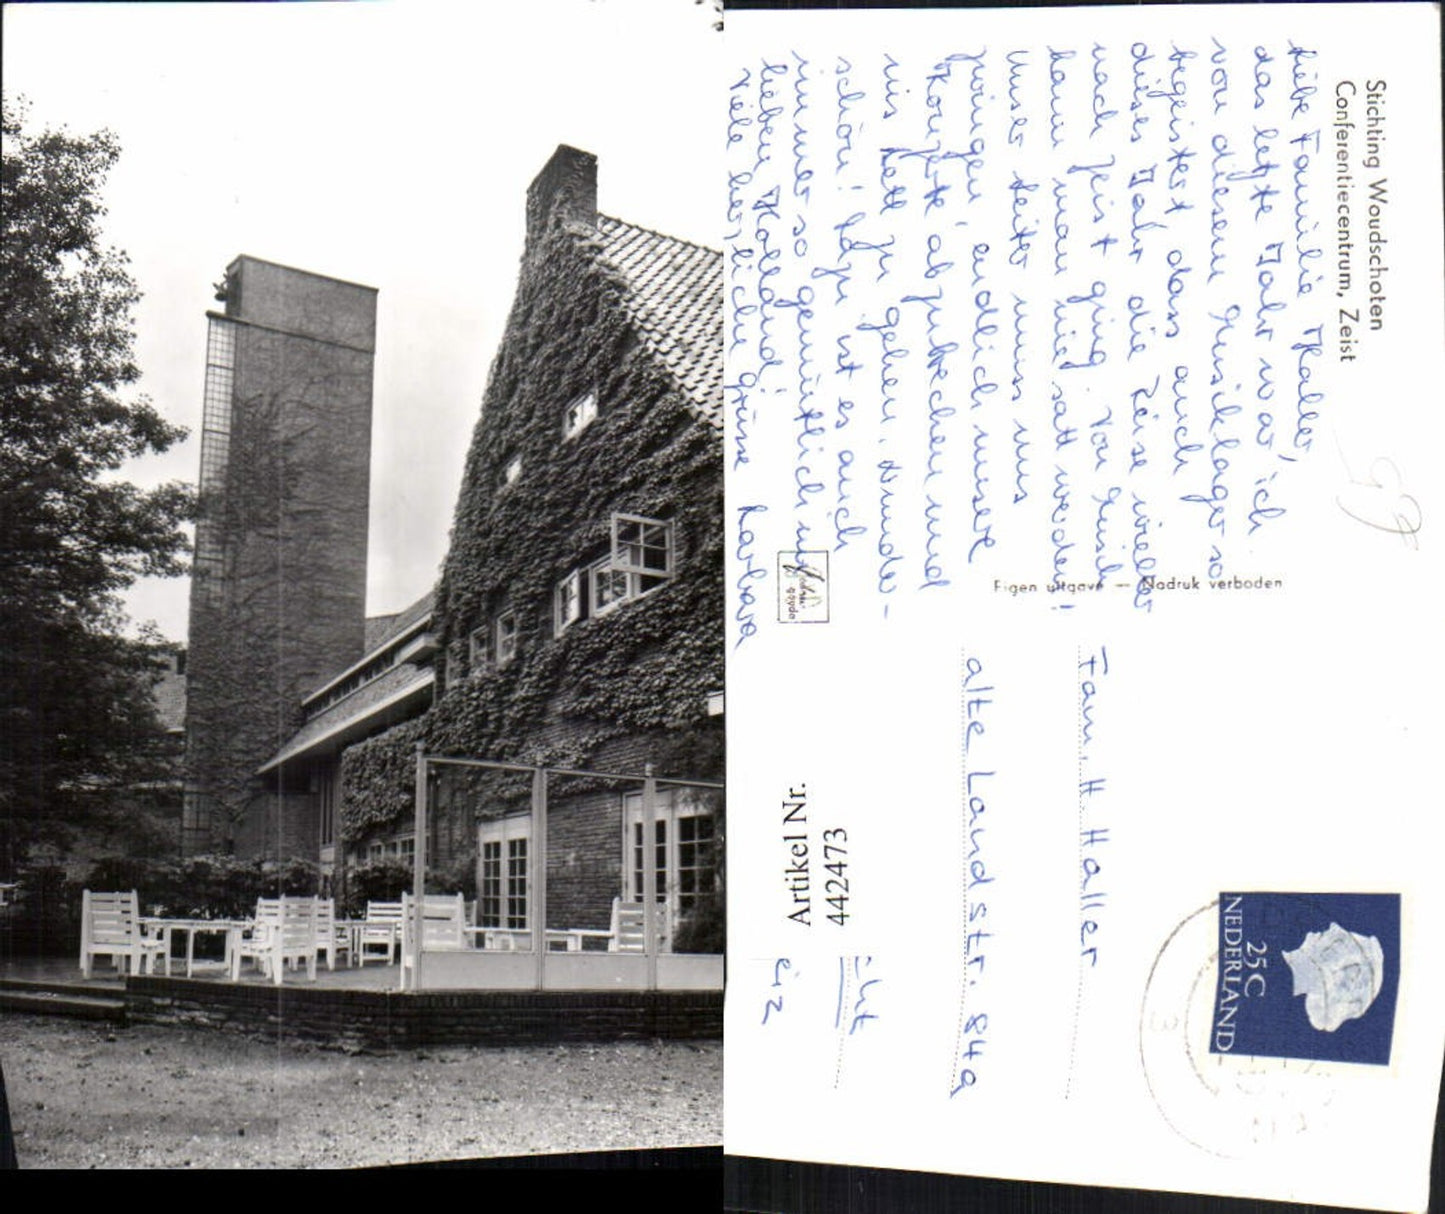 Stichting Woudschoten
Conferentiecentrum, Zeist
Liebe Familie Haller,
das letzte Jahr war ich
von diesem Musiklager so
begeistert, dass auch
dieses Jahr die Reise wieder
nach Zeist ging. Von Musik
kann man nie satt werden!
Unser Leiter muss uns
zwingen, endlich unsere
Konzerte abzubrechen und
ins Bett zu gehen. Wunder-
schön! Dazu ist es auch
immer so gemütlich im
lieben Holland!
Viele herzliche Grüsse Barbara
Eigen uitgave — Nadruk verboden
Fam. H. Haller
alte Landstr. 84a
Artikel Nr.
442473
NEDERLAND
25 C